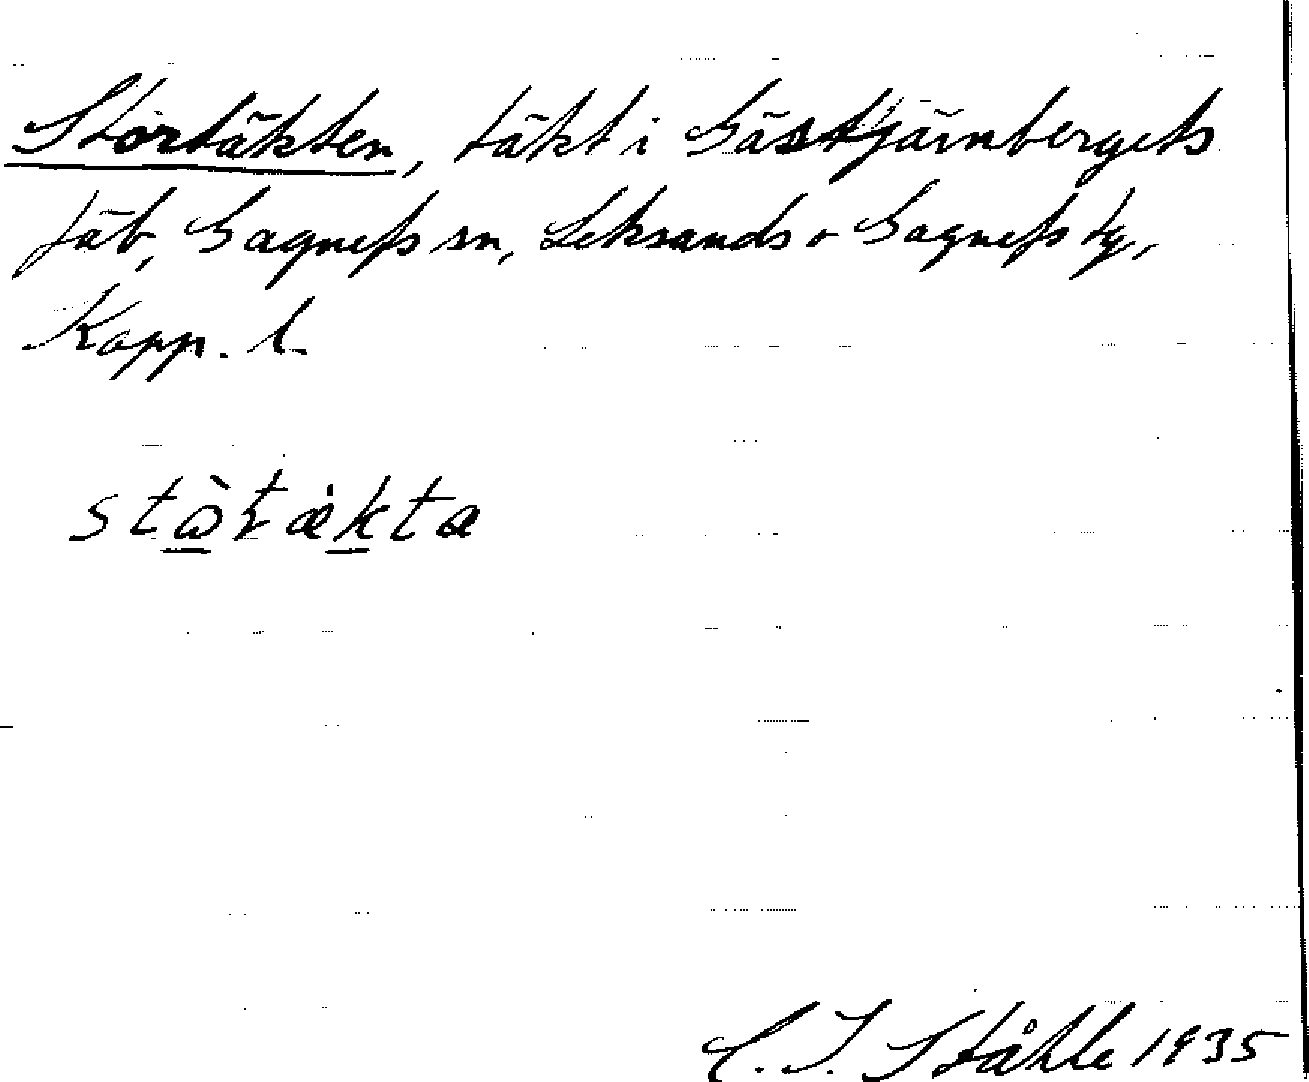 Stortäkten, täkt i Gåstjärnbergets
fäb, Gagnefs sn, Leksands o Gagnefs tg,
Kopp. l.
C. I. Ståhle 1935